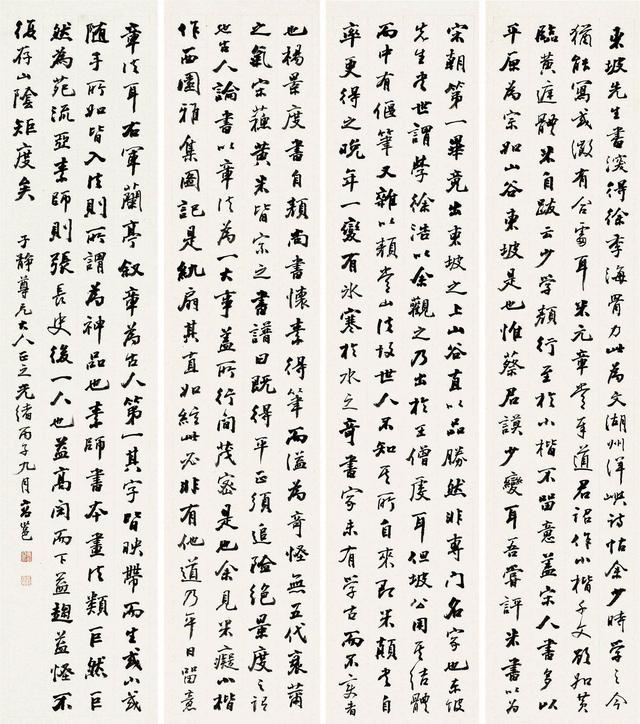 東坡先生書深得徐季海骨力此為文湖州洋嶼詩帖余少時學之今
猶能寫或微有合處耳米元章嘗奉道君詔作小楷千文欲如黃
臨黃庭體米自跋云少學顏行至於小楷不留意蓋宋人書多以
平原為宗如山谷東坡是也惟蔡君謨少變耳吾嘗評米書以為
宋朝第一畢竟出東坡之上山谷直以品勝然非專門名家也東坡
先生書世謂學徐浩以余觀之乃出於王僧虔耳但坡公用其結體
而中有偃筆又雜以顏常山法故世人不知其所自來即米顛書自
率更得之晚年一變有冰寒於水之奇書家未有學古而不變者
也楊景度書自顏尚書懷素得筆而溢為奇怪無五代衰薾
之氣宋蘇黃米皆宗之書譜曰既得平正須追險絕景度之謂
也古人論書以章法為一大事蓋所行間茂密是也余見米癡小楷
作西園雅集圖記是紈扇其直如絃此必非有他道乃平日留意
章法耳右軍蘭亭敘章為古人第一其字皆映帶而生或小或
隨手所如皆入法則所謂為神品也素師書本畫法類巨然巨
然為苑流亞素師則張長史後一人也益高閑而下益趨益怪不
復存山陰矩度矣
子靜尊兄大人正之光緒丙子九月